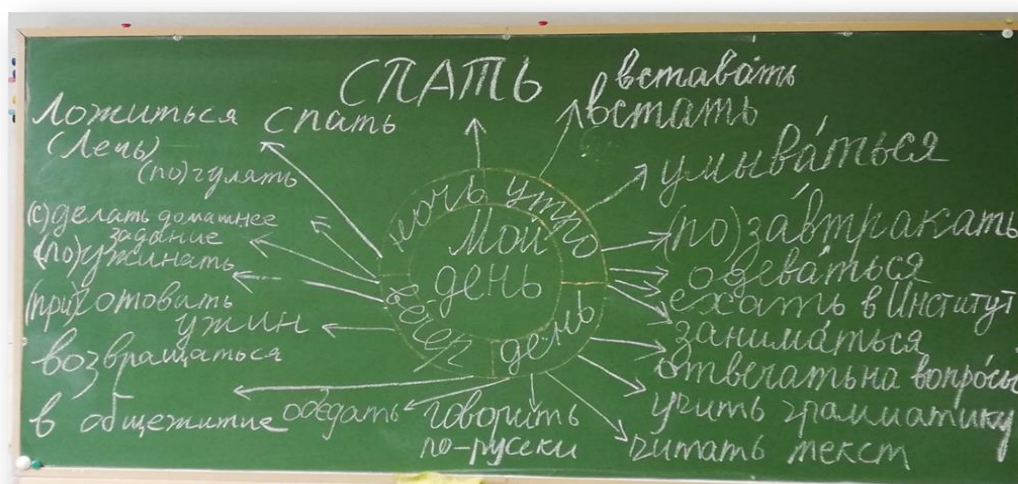 СПАТЬ
вставáть
встать
умывáться
(по)зáвтракать
одевáться
ехать в Институт
занимáться
отвечать на вопрóсы
учить грамматику
читать текст
говорить
по-русски
обедать
возвращаться
в общежитие
(при)готовить
ужин
(по)ужинать
(с)делать домашнее
задание
(по)гулять
Ложиться спать
(Лечь)
ночь утро
день
вечер
Мой
день